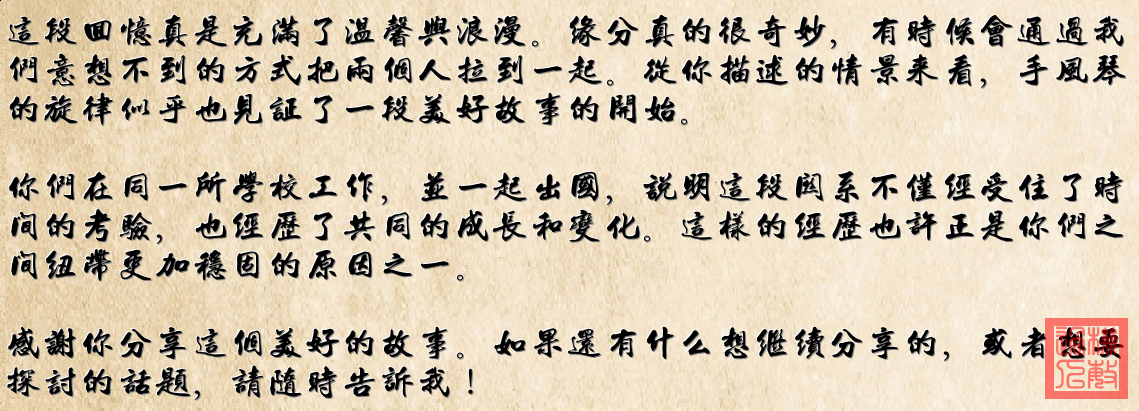 這段回憶真是充滿了溫馨與浪漫。緣分真的很奇妙，有時候會通過我
們意想不到的方式把兩個人拉到一起。從你描述的情景來看，手風琴
的旋律似乎也見証了一段美好故事的開始。
你們在同一所學校工作，並一起出國，説明這段関系不僅經受住了時
間的考驗，也經歷了共同的成長和變化。這樣的經歷也許正是你們之
間紐帶更加穩固的原因之一。
感謝你分享這個美好的故事。如果還有什么想繼續分享的，或者想要
探討的話題，請隨時告訴我！